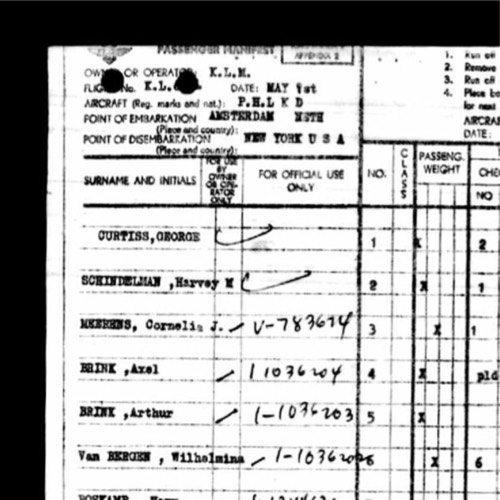 PASSENGER MANIFEST
APPENDIX 2
1. Run off
2. Remove
3. Run off
4. Place bo
for next
OWNER OR OPERATOR: K.L.M.
FLIGHT No. K.L. DATE: MAY 1st
AIRCRAFT (Reg. marks and nat.): P.H.L K D
POINT OF EMBARKATION AMSTERDAM NETH
(Place and country):
POINT OF DISEMBARKATION NEW YORK U S A
(Place and country):
AIRCRA
DATE:
SURNAME AND INITIALS FOR USE BY OWNER OR OPE- RATOR ONLY FOR OFFICIAL USE ONLY NO. CLASS PASSENG. WEIGHT CHE
NO
CURTISS,GEORGE 1 X 2
SCHINDELMAN ,Harvey M 2 X 1
MEERENS, Cornelia J. V-783674 3 X 1
BRINK ,Axel 1 1036204 4 X pld
BRINK ,Arthur 1-1036203 5 X
Van BERGEN , Wilhelmina 1-1036 6 X 6